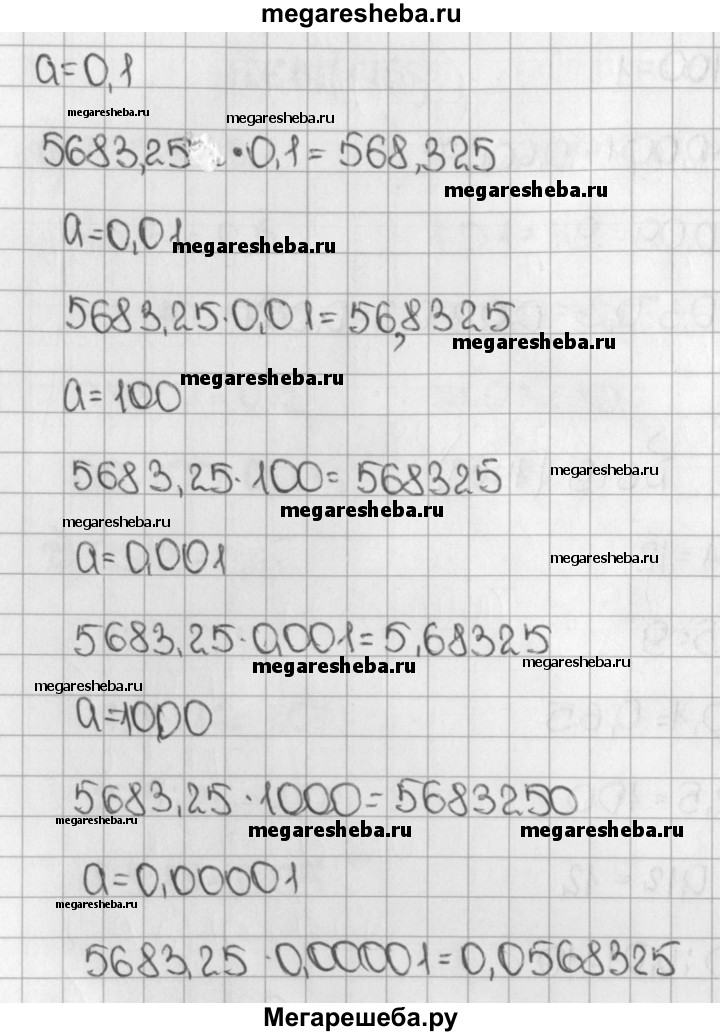 megaresheba.ru
a=0,1
megaresheba.ru megaresheba.ru
5683,25 ·0,1= 568,325
megaresheba.ru
a=0,01
megaresheba.ru
5683,25·0,01=56,8325
megaresheba.ru
megaresheba.ru
a=100
5683,25·100=568325
megaresheba.ru
megaresheba.ru
megaresheba.ru
a=0,001
megaresheba.ru
5683,25·0,001=5,68325
megaresheba.ru
megaresheba.ru
megaresheba.ru
a=1000
5683,25·1000=5683250
megaresheba.ru
megaresheba.ru
megaresheba.ru
a=0,00001
megaresheba.ru
5683,25·0,00001=0,0568325
Мегарешеба.ру